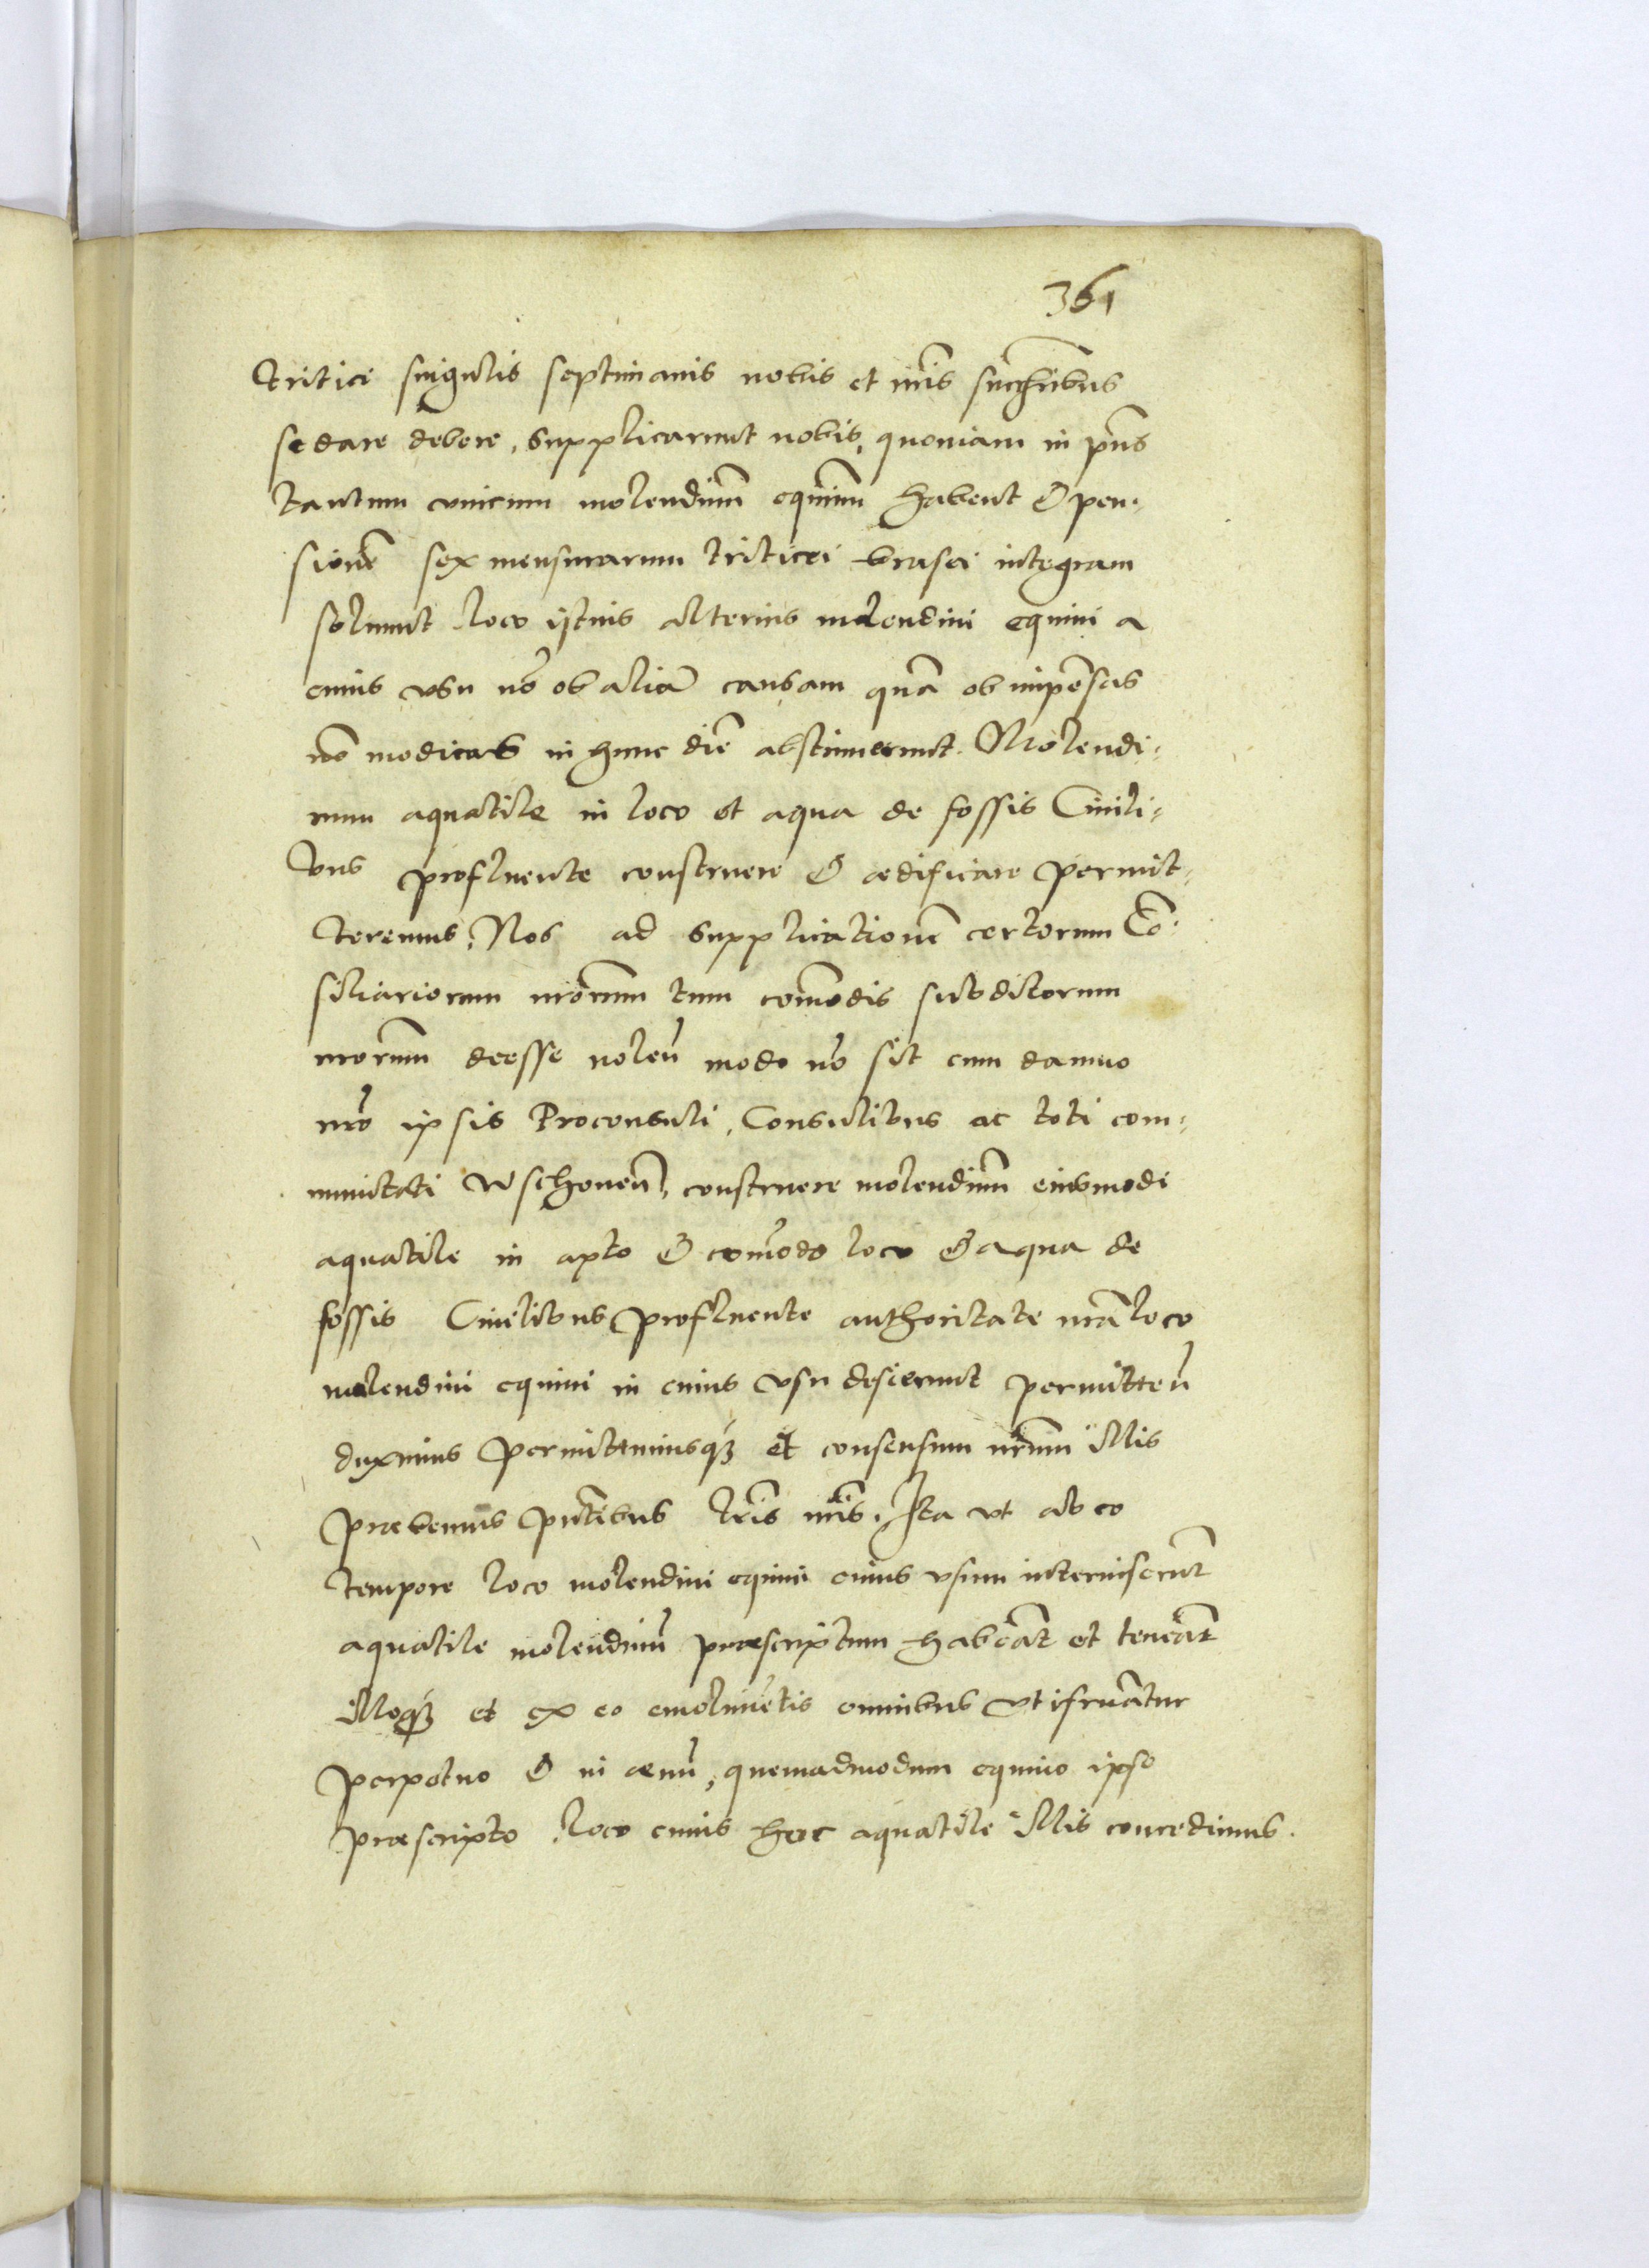 361
tritici singulis septimanis nobis et nr̃is succẽribus
se dare debere, supplicarunt nobis, quoniam in pñs
tantum vnicum molendinũ equinũ habent & pen-
sionẽ sex mensurarum triticei brasei integram
soluunt loco istius alterius molendini equini a
cuius vsu nõ ob aliã causam quã ob impẽsas
nõ modicas in hunc diẽ abstinuerunt. Molendi-
num aquatile in loco et aqua de fossis Ciuili-
bus profluente construere & ædificare permit-
teremus, Nos ad supplicationẽ certorum Cõ-
siliariorum nr̃orum tum com̃odis subditorum
nr̃orum deesse nolen̄ modo nõ sit cum damno
nr̃o ipsis Proconsuli, Consulibus ac toti com-
munitati Wschonen̄, construere molendinũ eiusmodi
aquatile in apto & com̃odo loco & aqua de
fossis Ciuilibus profluente authoritate nr̃a loco
molendini equini in cuius vsu desierunt permitten̄
duximus permittimusq₃ et consensum nr̃um illis
præbemus pñtibus lr̃is nr̃is. Ita vt ab eo
tempore loco molendini equini cuius vsum intermiserũt
aquatile molendinũ præscriptum habeãt et teneãt
illoq₃ et ex eo emolumẽtis omnibus vtifruãtur
perpetuo & in æuũ, quemadmodum equino ipso
præscripto loco cuius hoc aquatile illis concedimus.